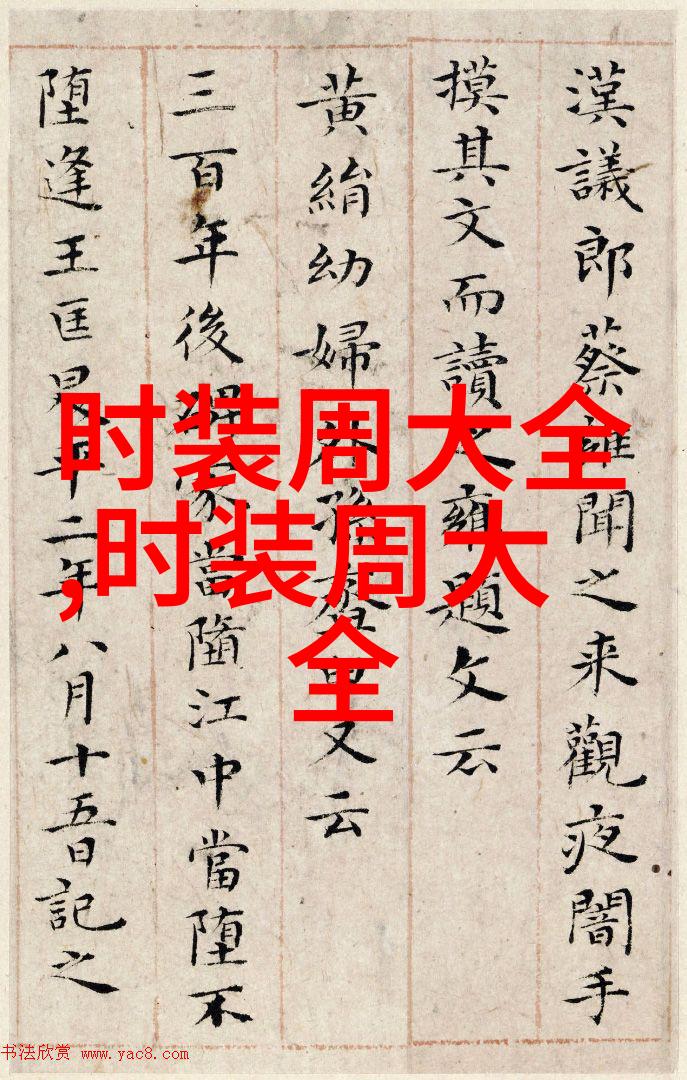 漢議郎蔡雍聞之来觀夜闇手
摸其文而讀之雍題文云
黄絹幼婦外孫又云
三百年後冢當墮江中當堕不
堕逢王匡昇平二年八月十五日記之
时装周大全
,时装周大
全
书法欣赏 www.yac8.com